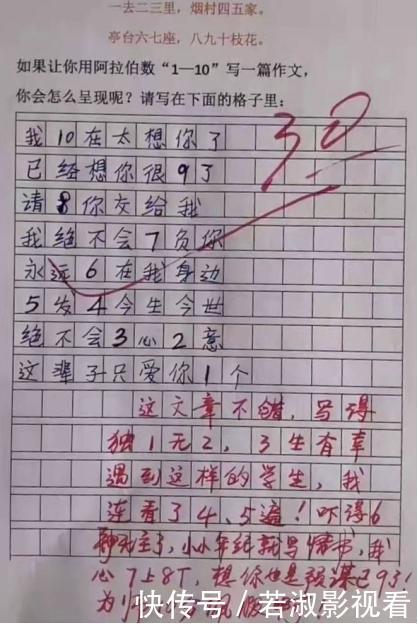 一去二三里，烟村四五家。
亭台六七座，八九十枝花。
如果让你用阿拉伯数“1—10”写一篇作文，
你会怎么呈现呢？请写在下面的格子里：
30
我10在太想你了
已经想你很9了
请8你交给我
我绝不会7负你
永远6在我身边
5发4今生今世
绝不会3心2意
这辈子只爱你1个
这文章不错，写得
独1无2，3生有幸
遇到这样的学生，我
连看了4、5遍！吓得6
神无主了，小小年纪就写情书，我
心7上8下，想你也是预谋已9了！
为
快传号／若淑影视看